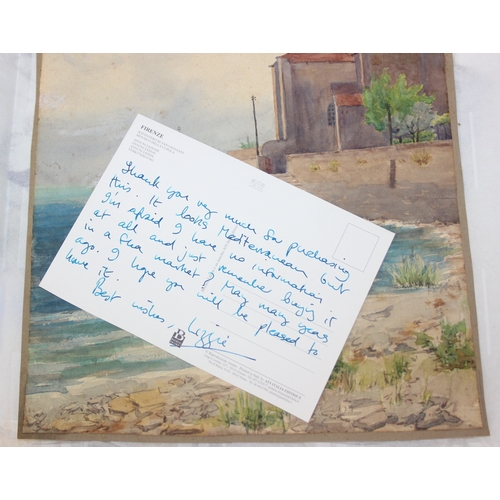 FIRENZE
Thank you very much for purchasing
this. It looks Mediterranean but
I'm afraid I have no information
at all and just remember buying it
in a flea market, many many years
ago. I hope you will be pleased to
have it.
Best wishes,
Lizzie